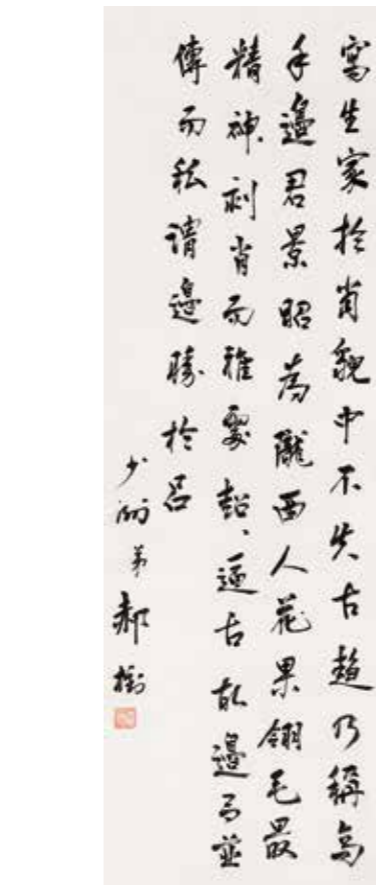 寫生家於肖貌中不失古趣乃稱高
手邊君景昭為隴西人花果翎毛最
精神刻肖而雅處超〻逼古故邊呂並
傳而私謂邊勝於呂
少洲弟郝樹